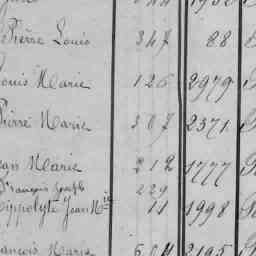 Pierre Louis 347 88
Louis Marie 126 2979
Pierre Marie 367 2371
Jean Marie 212 1777
François Joseph 229
Hippolyte Jean M ie 11 1998
François Marie 504 2195